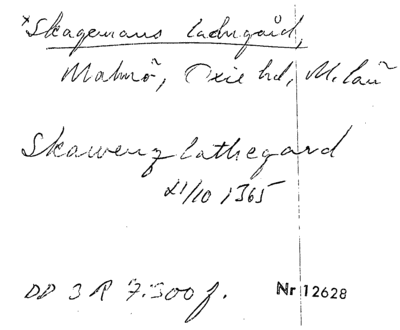 *Skagenians ladugård,
Malmö, Oxie hd, M. län
Skawenzlathegard
21/10 1365
DD 3 R 7.300 f.
Nr 12628